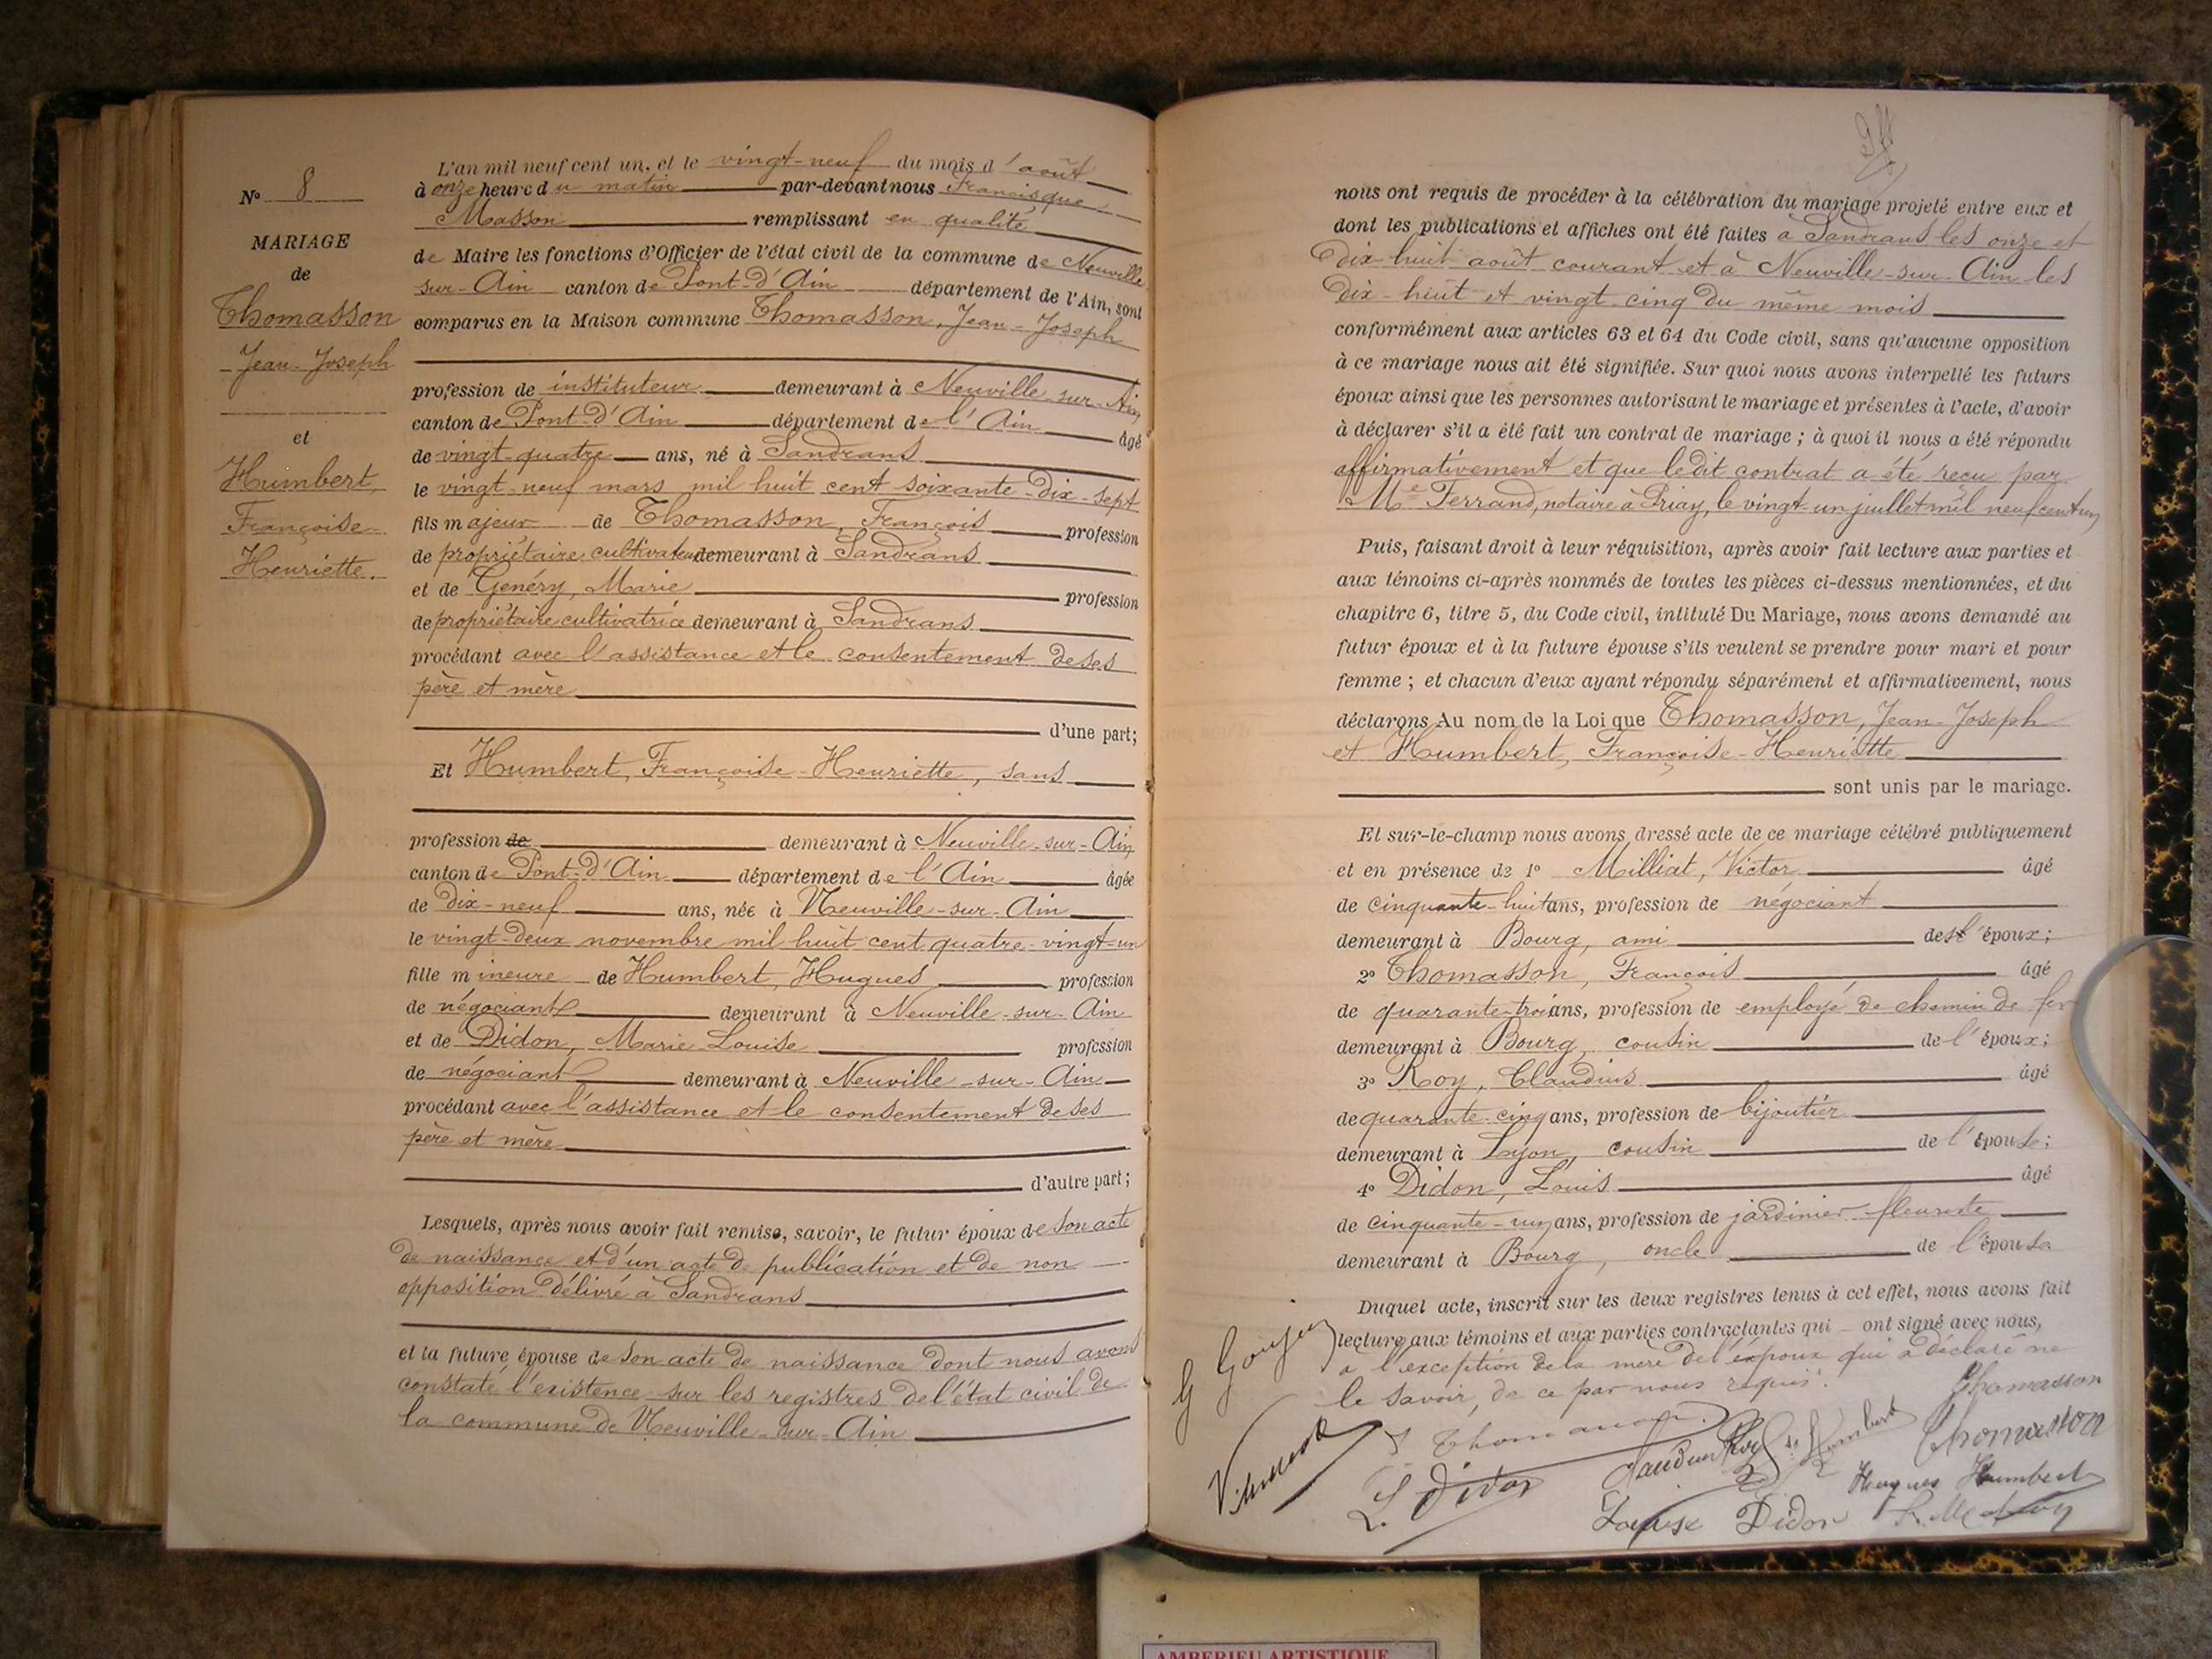 N° 8
MARIAGE
de
Thomasson
Jean-Joseph
et
Humbert,
Françoise-
Henriette.
L'an mil neuf cent un, et le vingt-neuf du mois d'août
à onze heure du matin par-devant nous Francisque
Masson remplissant en qualité
de Maire les fonctions d'Officier de l'état civil de la commune de Neuville
sur-Ain canton de Pont-d'Ain département de l'Ain, sont
comparus en la Maison commune Thomasson, Jean-Joseph
profession de instituteur demeurant à Neuville-sur-Ain,
canton de Pont-d'Ain département de l'Ain âgé
de vingt-quatre ans, né à Sandrans
le vingt-neuf mars mil huit cent soixante-dix-sept
fils majeur de Thomasson, François profession
de propriétaire cultivateur demeurant à Sandrans
et de Genéry, Marie profession
de propriétaire cultivatrice demeurant à Sandrans
procédant avec l'assistance et le consentement de ses
père et mère
d'une part;
Et Humbert, Françoise-Henriette, sans
profession de demeurant à Neuville-sur-Ain
canton de Pont-d'Ain département de l'Ain âgée
de dix-neuf ans, née à Neuville-sur-Ain
le vingt-deux novembre mil huit cent quatre-vingt-un
fille mineure de Humbert, Hugues profession
de négociant demeurant à Neuville-sur-Ain
et de Didon, Marie-Louise profession
de négociant demeurant à Neuville-sur-Ain
procédant avec l'assistance et le consentement de ses
père et mère
d'autre part;
Lesquels, après nous avoir fait remise, savoir, le futur époux de son acte
de naissance et d'un acte de publication et de non
opposition délivré à Sandrans
et la future épouse de son acte de naissance dont nous avons
constaté l'existence sur les registres de l'état civil de
la commune de Neuville-sur-Ain
nous ont requis de procéder à la célébration du mariage projeté entre eux et
dont les publications et affiches ont été faites à Sandrans les onze et
dix-huit août courant et à Neuville-sur-Ain les
dix-huit et vingt-cinq du même mois
conformément aux articles 63 et 64 du Code civil, sans qu'aucune opposition
à ce mariage nous ait été signifiée. Sur quoi nous avons interpellé les futurs
époux ainsi que les personnes autorisant le mariage et présentes à l'acte, d'avoir
à déclarer s'il a été fait un contrat de mariage; à quoi il nous a été répondu
affirmativement et que ledit contrat a été reçu par
Me Ferrand, notaire à Priay, le vingt-un juillet mil neuf cent un
Puis, faisant droit à leur réquisition, après avoir fait lecture aux parties et
aux témoins ci-après nommés de toutes les pièces ci-dessus mentionnées, et du
chapitre 6, titre 5, du Code civil, intitulé Du Mariage, nous avons demandé au
futur époux et à la future épouse s'ils veulent se prendre pour mari et pour
femme; et chacun d'eux ayant répondu séparément et affirmativement, nous
déclarons Au nom de la Loi que Thomasson, Jean-Joseph
et Humbert, Françoise-Henriette
sont unis par le mariage.
Et sur-le-champ nous avons dressé acte de ce mariage célébré publiquement
et en présence de 1° Milliat, Victor âgé
de cinquante-huit ans, profession de négociant
demeurant à Bourg, ami des époux;
2° Thomasson, François âgé
de quarante-trois ans, profession de employé de chemin de fer
demeurant à Bourg, cousin de l'époux;
3° Roy, Claudius âgé
de quarante-cinq ans, profession de bijoutier
demeurant à Lyon, cousin de l'épouse;
4° Didon, Louis âgé
de cinquante-un ans, profession de jardinier-fleuriste
demeurant à Bourg, oncle de l'épouse
Duquel acte, inscrit sur les deux registres tenus à cet effet, nous avons fait
lecture aux témoins et aux parties contractantes qui ont signé avec nous,
à l'exception de la mère de l'époux qui a déclaré ne
le savoir, de ce par nous requis.
Thomasson
Thomasson
L. Didon
Hugues Humbert
Louise Didon
AMBERIEU ARTISTIQUE